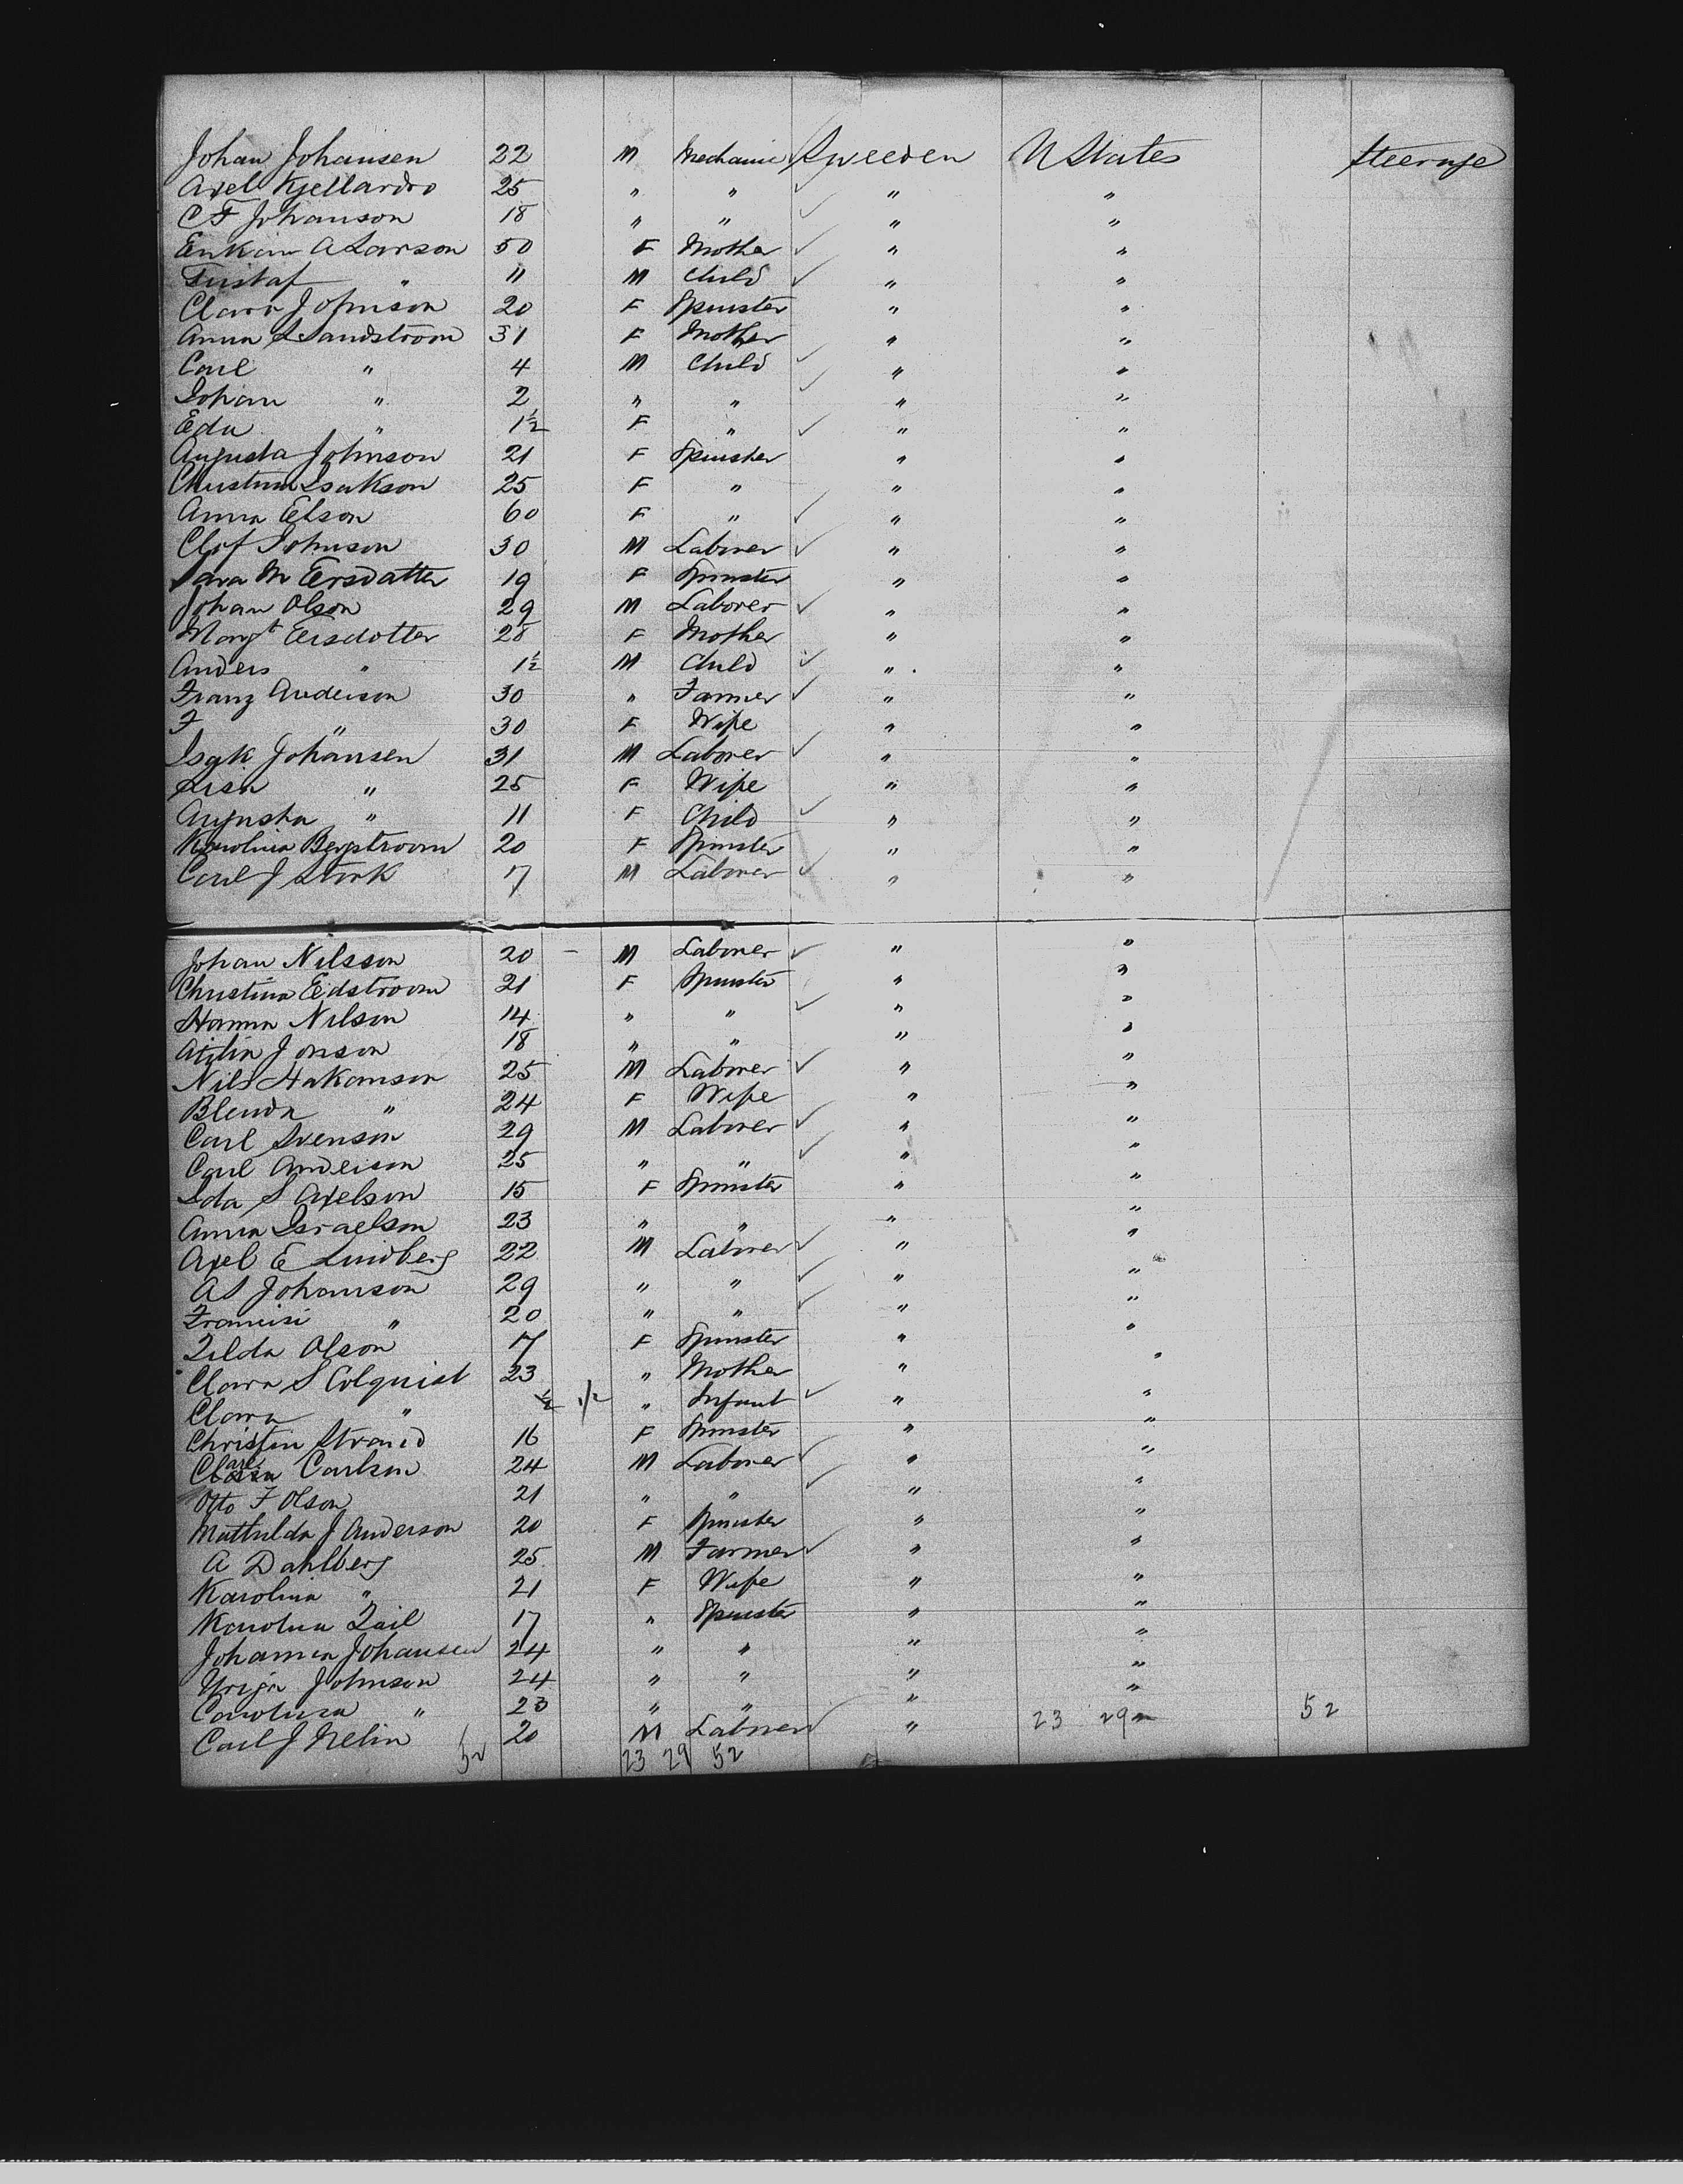 Johan Johansen 22 M Mechanic Sweeden U States Steerage
Axel Kjellardro 25 " " " "
C F Johanson 18 " " " "
A Larson 50 F Mother " "
Gustaf " 11 M Child " "
Clara Johnson 20 F Spinster " "
Anna L Sandstroom 31 F Mother " "
Carl " 4 M Child " "
Johan " 2 " " " "
Eda " 1½ F " " "
Augusta Johnson 21 F Spinster " "
Christina Isakson 25 F " " "
Anna Elson 60 F " " "
Olof Johnson 30 M Laborer " "
Sara M Ersdatter 19 F Spinster " "
Johan Olson 29 M Laborer " "
Margt Ersdotter 28 F Mother " "
Anders " 1½ M Child " "
Franz Anderson 30 " Farmer " "
F " 30 F Wife " "
Isak Johansen 31 M Laborer " "
Lisa " 25 F Wife " "
Augusta " 11 F Child " "
Karolina Bergstroom 20 F Spinster " "
Carl J Stork 17 M Laborer " "
Johan Nilsson 20 - M Laborer " "
Christina Edstroom 21 F Spinster " "
Hanna Nilson 14 " " " "
Jonson 18 " " " "
Nils Hakanson 25 M Laborer " "
Blenda " 24 F Wife " "
Carl Svenson 29 M Laborer " "
Carl Anderson 25 " " " "
Ida S Axelson 15 F Spinster " "
Anna Israelson 23 " " " "
Axel E Lindberg 22 M Laborer " "
A S Johanson 29 " " " "
" 20 " " " "
Tilda Olson 17 F Spinster " "
Clara S Colquist 23 " Mother " "
Clara " ½ 1/2 " Infant " "
Christin Strand 16 F Spinster " "
Carl Carlson 24 M Laborer " "
Otto F Olson 21 " " " "
Mathilda J Anderson 20 F Spinster " "
A Dahlberg 25 M Farmer " "
Karolina " 21 F Wife " "
Karolina Zail 17 " Spinster " "
Johanna Johansen 24 " " " "
Johnson 24 " " " "
Carolina " 23 " " " "
Carl J Melin 20 M Laborer " 23 29 52
52 23 29 52